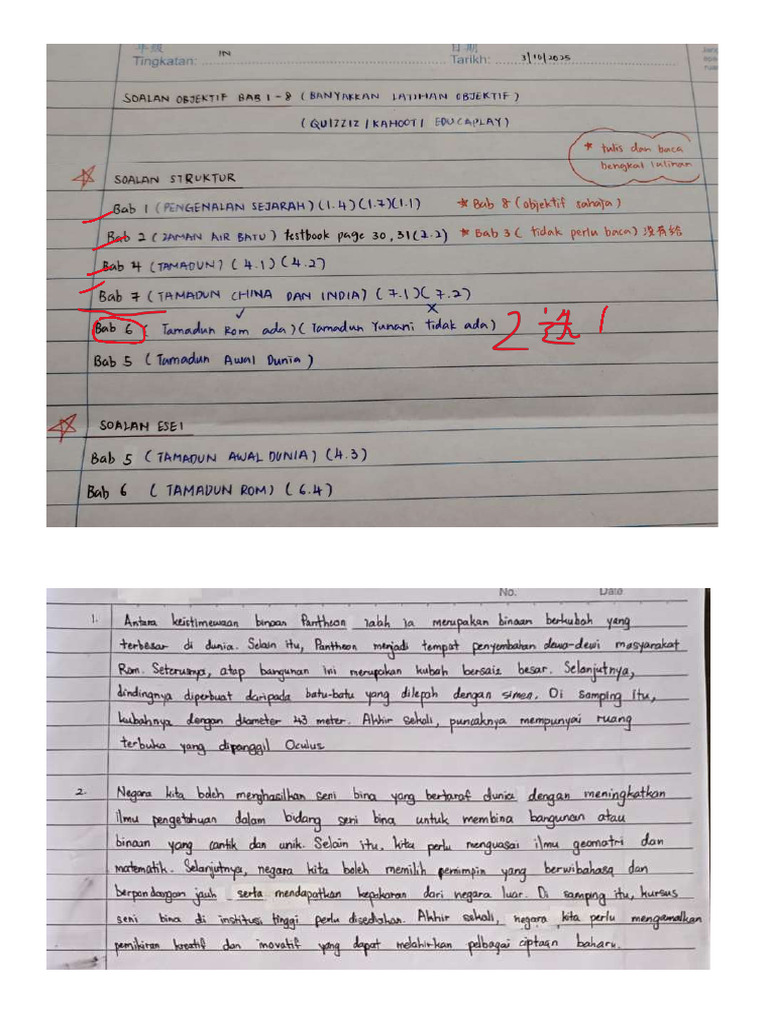 年级
Tingkatan: IN
日期
Tarikh: 3/10/2025
SOALAN OBJEKTIF BAB 1-8 (BANYAKKAN LATIHAN OBJEKTIF)
(QUIZZIZ / KAHOOT / EDUCAPLAY)
* tulis dan baca
bengkel lalinan
SOALAN STRUKTUR
Bab 1 (PENGENALAN SEJARAH) (1.4)(1.7)(1.1) * Bab 8 (objektif sahaja)
Bab 2 (ZAMAN AIR BATU) testbook page 30, 31(2.2) * Bab 3 (tidak perlu baca) 没有给
Bab 4 (TAMADUN) (4.1) (4.2)
Bab 7 (TAMADUN CHINA DAN INDIA) (7.1)(7.2)
Bab 6 ( Tamadun Rom ada) (Tamadun Yunani tidak ada) 2选1
Bab 5 (Tamadun Awal Dunia)
SOALAN ESEI
Bab 5 (TAMADUN AWAL DUNIA) (4.3)
Bab 6 (TAMADUN ROM) (6.4)
No. Date
1. Antara keistimewaan binaan Pantheon ialah ia merupakan binaan berkubah yang
terbesar di dunia. Selain itu, Pantheon menjadi tempat penyembahan dewa-dewi masyarakat
Rom. Seterusnya, atap bangunan ini merupakan kubah bersaiz besar. Selanjutnya,
dindingnya diperbuat daripada batu-batu yang dilepah dengan simen. Di samping itu,
kubahnya dengan diameter 43 meter. Akhir sekali, puncaknya mempunyai ruang
terbuka yang dipanggil Oculus
2. Negara kita boleh menghasilkan seni bina yang bertaraf dunia dengan meningkatkan
ilmu pengetahuan dalam bidang seni bina untuk membina bangunan atau
binaan yang cantik dan unik. Selain itu, kita perlu menguasai ilmu geomatri dan
matematik. Selanjutnya, negara kita boleh memilih pemimpin yang berwibahasa dan
berpandangan jauh serta mendapatkan kepakaran dari negara luar. Di samping itu, kursus
seni bina di institusi tinggi perlu disediakan. Akhir sekali, negara kita perlu mengamalkan
pemikiran kreatif dan inovatif yang dapat melahirkan pelbagai ciptaan baharu.